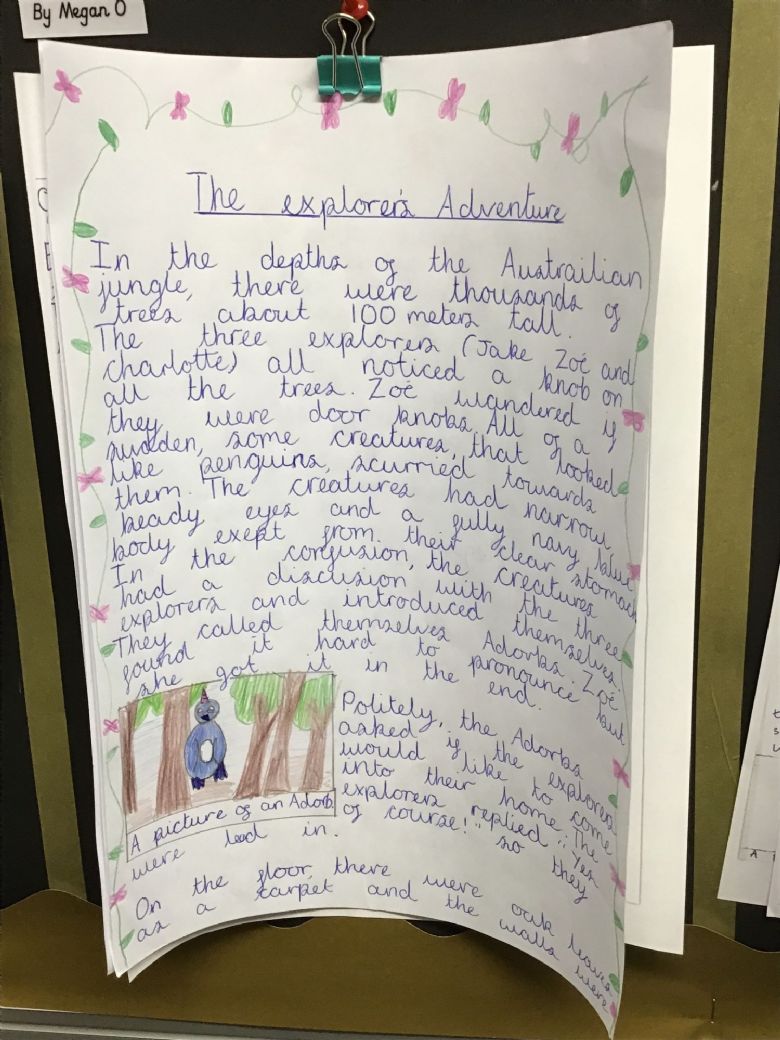 By Megan O
The explorer's Adventure
In the depths of the Austrailian
jungle, there were thousands of
trees about 100 meters tall.
The three explorers (Jake Zoë and
charlotte) all noticed a knob on
all the trees. Zoë wandered if
they were door knobs. All of a
sudden, some creatures, that looked
like penguins, scurried towards
them. The creatures had narrow
beady eyes and a fully navy blue
body exept from their clear stomach
In the confusion, the creatures
had a discusion with the three
explorers and introduced themselves.
They called themselves Adorbs. Zoë
found it hard to pronounce but
she got it in the end.
Politely, the Adorbs
asked if the explorers
would like to come
into their home. The
explorers replied "Yes
of course!" so they
were lead in.
A picture of an Adorb
On the floor, there were oak leaves
as a carpet and the walls were